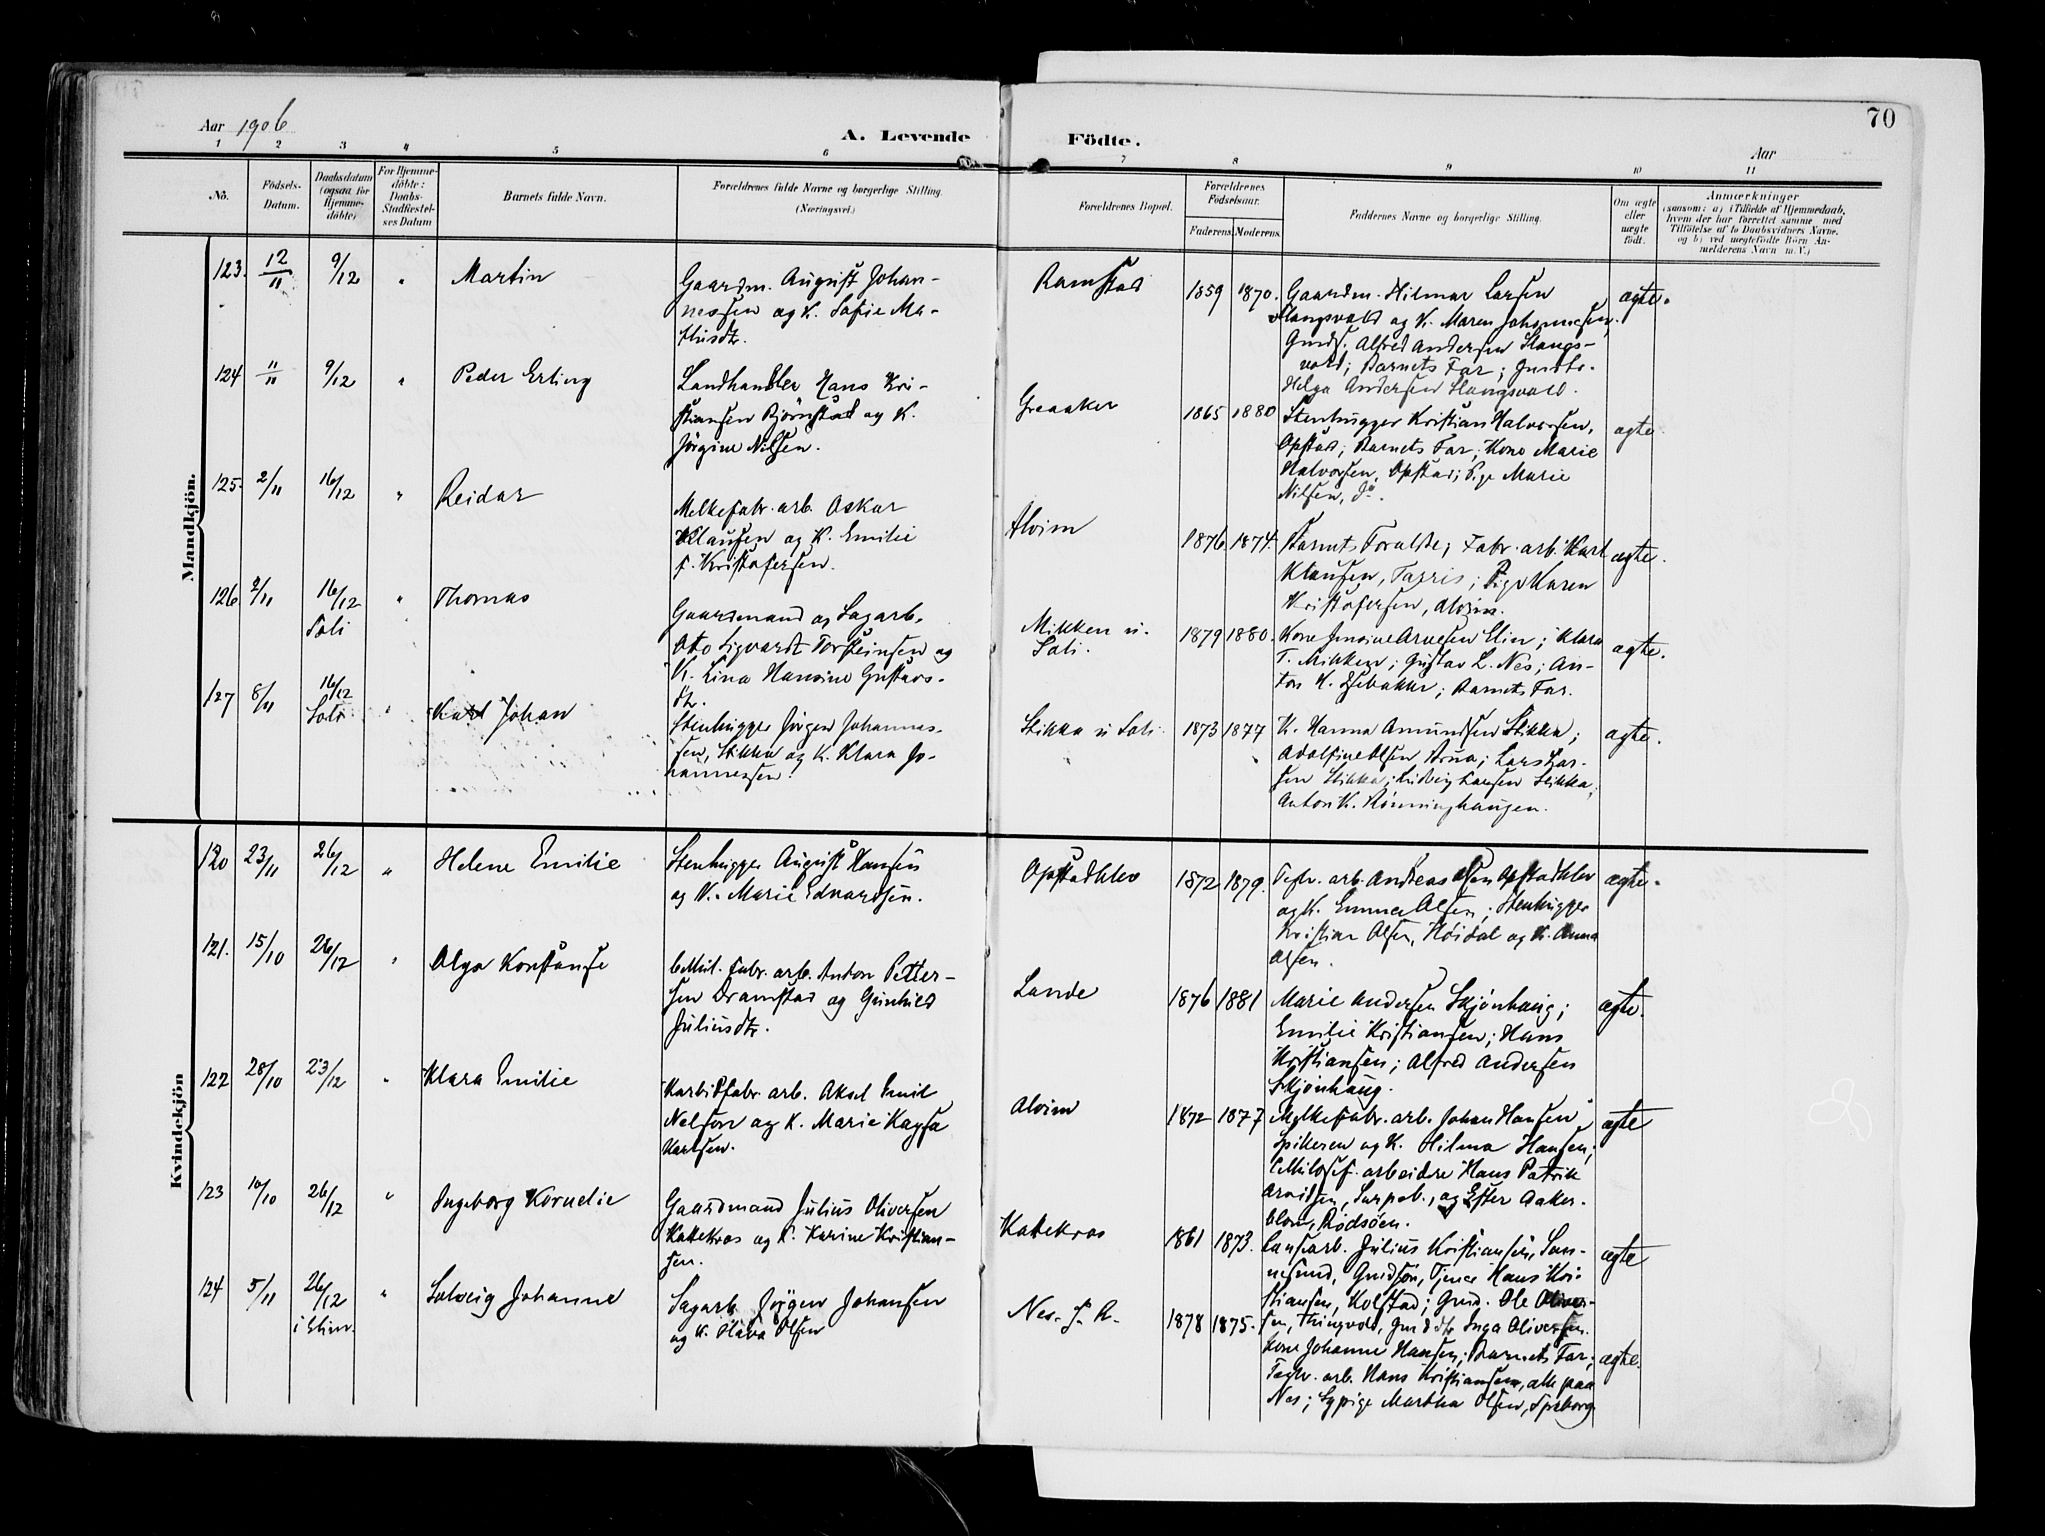 70
Aar 1906
A. Levende Födte.
Aar
1 2 3 4 5 6 7 8 9 10 11
No.
Födsels-
Datum.
Daabsdatum
(ogsaa for
Hjemme-
döbte)
For Hjemme-
döbte:
Daabs-
Stadfæstel-
ses Datum
Barnets fulde Navn.
Forældrenes fulde Navne og borgerlige Stilling.
(Næringsvei.)
Forældrenes Bopæl.
Forældrenes
Födselsaar.
Faderens
Moderens
Faddernes Navne og borgerlige Stilling.
Om ægte
eller
uægte
födt.
Anmærkninger
(saasom: a) i Tilfælde af Hjemmedaab,
hvem der har forrettet samme, med
Tilföielse af to Daabsvidners Navne,
og b) ved uægtefödte Börn An-
melderens Navn m. V.)
Mandkjön.
123. 12/11 9/12 " Martin
Gaardm. August Johan-
nessen og K. Sofie Ma-
thisdtr.
Ramstad
1859 1870.
Gaardm. Hilmar Larsen
Slangsvold og K. Maren Johannesen,
Gmds. Alfred Andersen Slangs-
vold; Barnets Far; Gmdtr.
Helga Andersen Slangsvold.
ægte.
124 "/11 9/12 " Peder Erling
Landhandler Hans Kri-
stiansen Bjørnstad og K.
Jørgine Nilsen.
Greaaker
1865 1880
Stenhugger Kristian Halvorsen,
Opstad; Barnets Far; Kone Marie
Halvorsen, Opstad; Pige Marie
Nilsen, do.
ægte
125. 2/11 16/12 " Reidar
Melkefabr. arb. Oskar
Klausen og K. Emilie
f. Kristofersen.
Alvim
1876 1874.
Barnets Foraldre; Fabr. arb. Karl
Klausen, Tarris; Pige Karen
Kristofersen, Alvim.
ægte.
126. 2/11 16/12 Soli " Thomas
Gaardmand og Sagarb.
Otto Sigvardt Torsteinsen og
K. Lina Hansine Gustavs-
dtr.
Mikken u.
Soli.
1879 1880.
Kone Jensine Arnesen Elin; Klara
T. Mikken; Gustav L. Nes; An-
ton K. Isebakke; Barnets Far.
ægte.
127 8/11 16/12 Soli " Karl Johan
Stenhugger Jørgen Johannes-
sen, Stikka og K. Klara Jo-
hannessen.
Stikka u Soli
1873 1877
K. Hanna Amundsen Stikka;
Adolfine Olsen, Brua; Lars Lar-
sen Stikka; Ludvig Larsen Stikka;
Anton K. Rønninghaugen.
ægte.
Kvindekjön
120 23/11 26/12 " Helene Emilie
Stenhugger August Hansen
og K. Marie Edvardsen.
Opstadklev
1872 1879.
Teglv. arb. Andreas Olsen Opstadklev
og K. Emma Olsen; Stenhugger
Kristian Olsen, Høidal og K. Anna
Olsen.
ægte.
121. 15/10 26/12 " Olga Konstanse
Cellul. Fabr. arb. Anton Petter-
sen Dramstad og Gunhild
Juliusdtr.
Lande
1876 1881
Marie Andersen Skjønhaug;
Emilie Kristiansen; Hans
Kristiansen; Alfred Andersen
Skjønhaug.
ægte.
122 28/10 23/12 " Klara Emilie
Karbidfabr. arb. Aksel Emil
Nelson og K. Marie Kaysa
Karlsen.
Alvim
1872 1877
Melkefabr. arb. Johan Hansen
Spikeren og K. Hilma Hansen;
Cellulosef. arbeidere Hans Patrik
Arvidsen, Sarpsb., og Ester Aaker-
blom, Rødsøen.
ægte
123 10/10 26/12 " Ingeborg Kornelie
Gaardmand Julius Oliversen
Kattekras og K. Karine Kristian-
sen.
Kattekras
1861 1873.
Landarb. Julius Kristiansen, San-
nesund, Gmdsøn, Tjener Hans Kri-
stiansen, Kolstad; Gmd. Ole Oliver-
sen, Tingvold, Gmddtr. Inga Oliversen.
ægte
124 5/11 26/12 i Elim. " Solveig Johanne
Sagarb. Jørgen Johansen
og K. Olava Olsen
Nes. S. R.
1878 1875.
Kone Johanne Hansen; Barnets Far;
Teglv. arb. Hans Kristiansen, alle paa
Nes; Sypige Martha Olsen, Spydeberg
ægte.